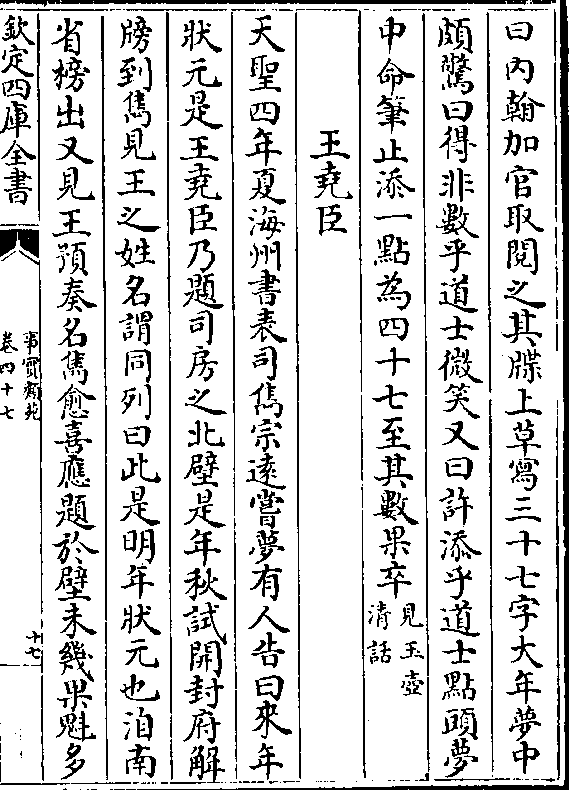 曰內翰加官取閱之其牒上草寫三十七字大年夢中
頗驚曰得非數乎道士微笑又曰許添乎道士點頭夢
中命筆止添一點為四十七至其數果卒見玉壺清話
王堯臣
天聖四年夏海州書表司雋宗遠嘗夢有人告曰來年
狀元是王堯臣乃題司房之北壁是年秋試開封府解
牓到雋見王之姓名謂同列曰此是明年狀元也洎南
省榜出又見王預奏名雋愈喜應題於壁未幾果魁多
欽定四庫全書
事實類苑
卷四十七
十七